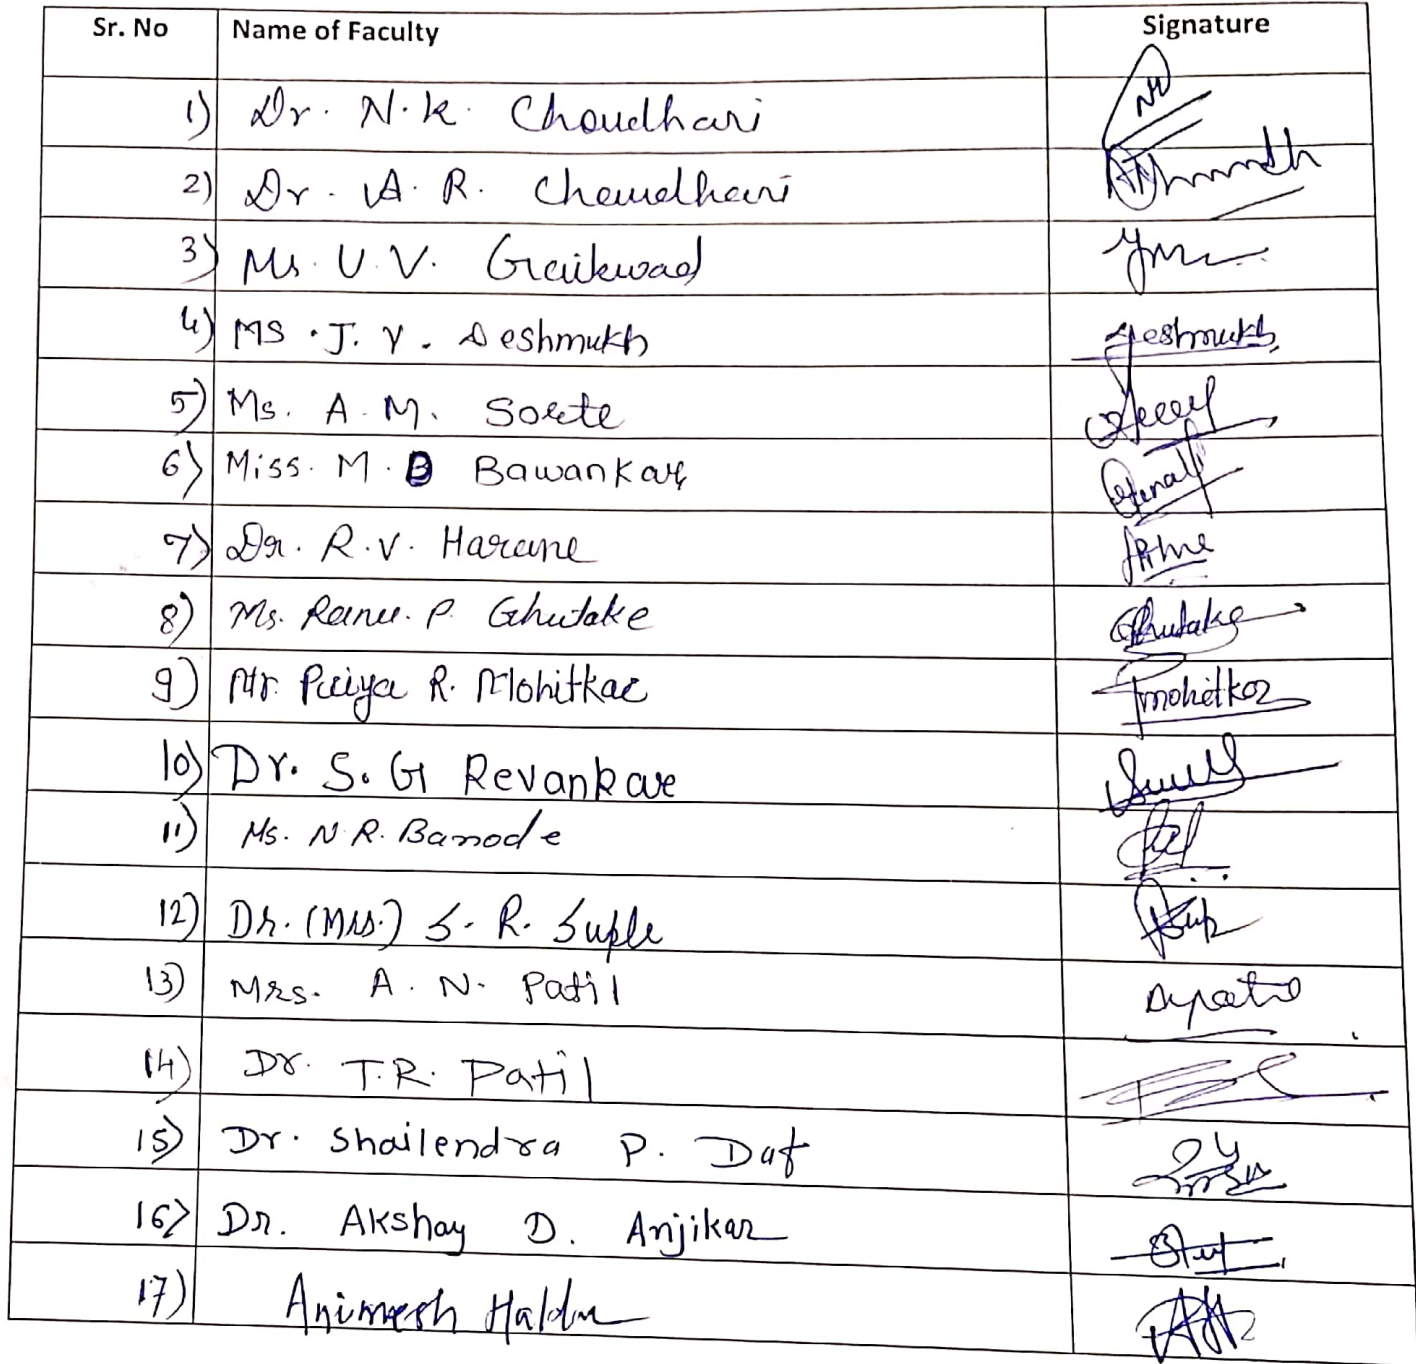 Sr. No Name of Faculty Signature
1) Dr. N.K. Choudhari
2) Dr. A. R. Choudhari
3) Ms. U. V. Gaikwad
4) MS. J. Y. Deshmukh Deshmukh
5) Ms. A. M. Sorte
6) Miss. M. B Bawankar
7) Dr. R. V. Harane
8) Ms. Ranu. P. Ghutake Ghutake
9) Mr. Priya R. Mohitkar Pmohitkar
10) Dr. S. G Revankar
11) Ms. N. R. Banode
12) Dr. (Mrs.) S. R. Suple
13) Mrs. A. N. Patil
14) Dr. T.R. Patil
15) Dr. Shailendra P. Daf
16) Dr. Akshay D. Anjikar
17) Animesh Halder